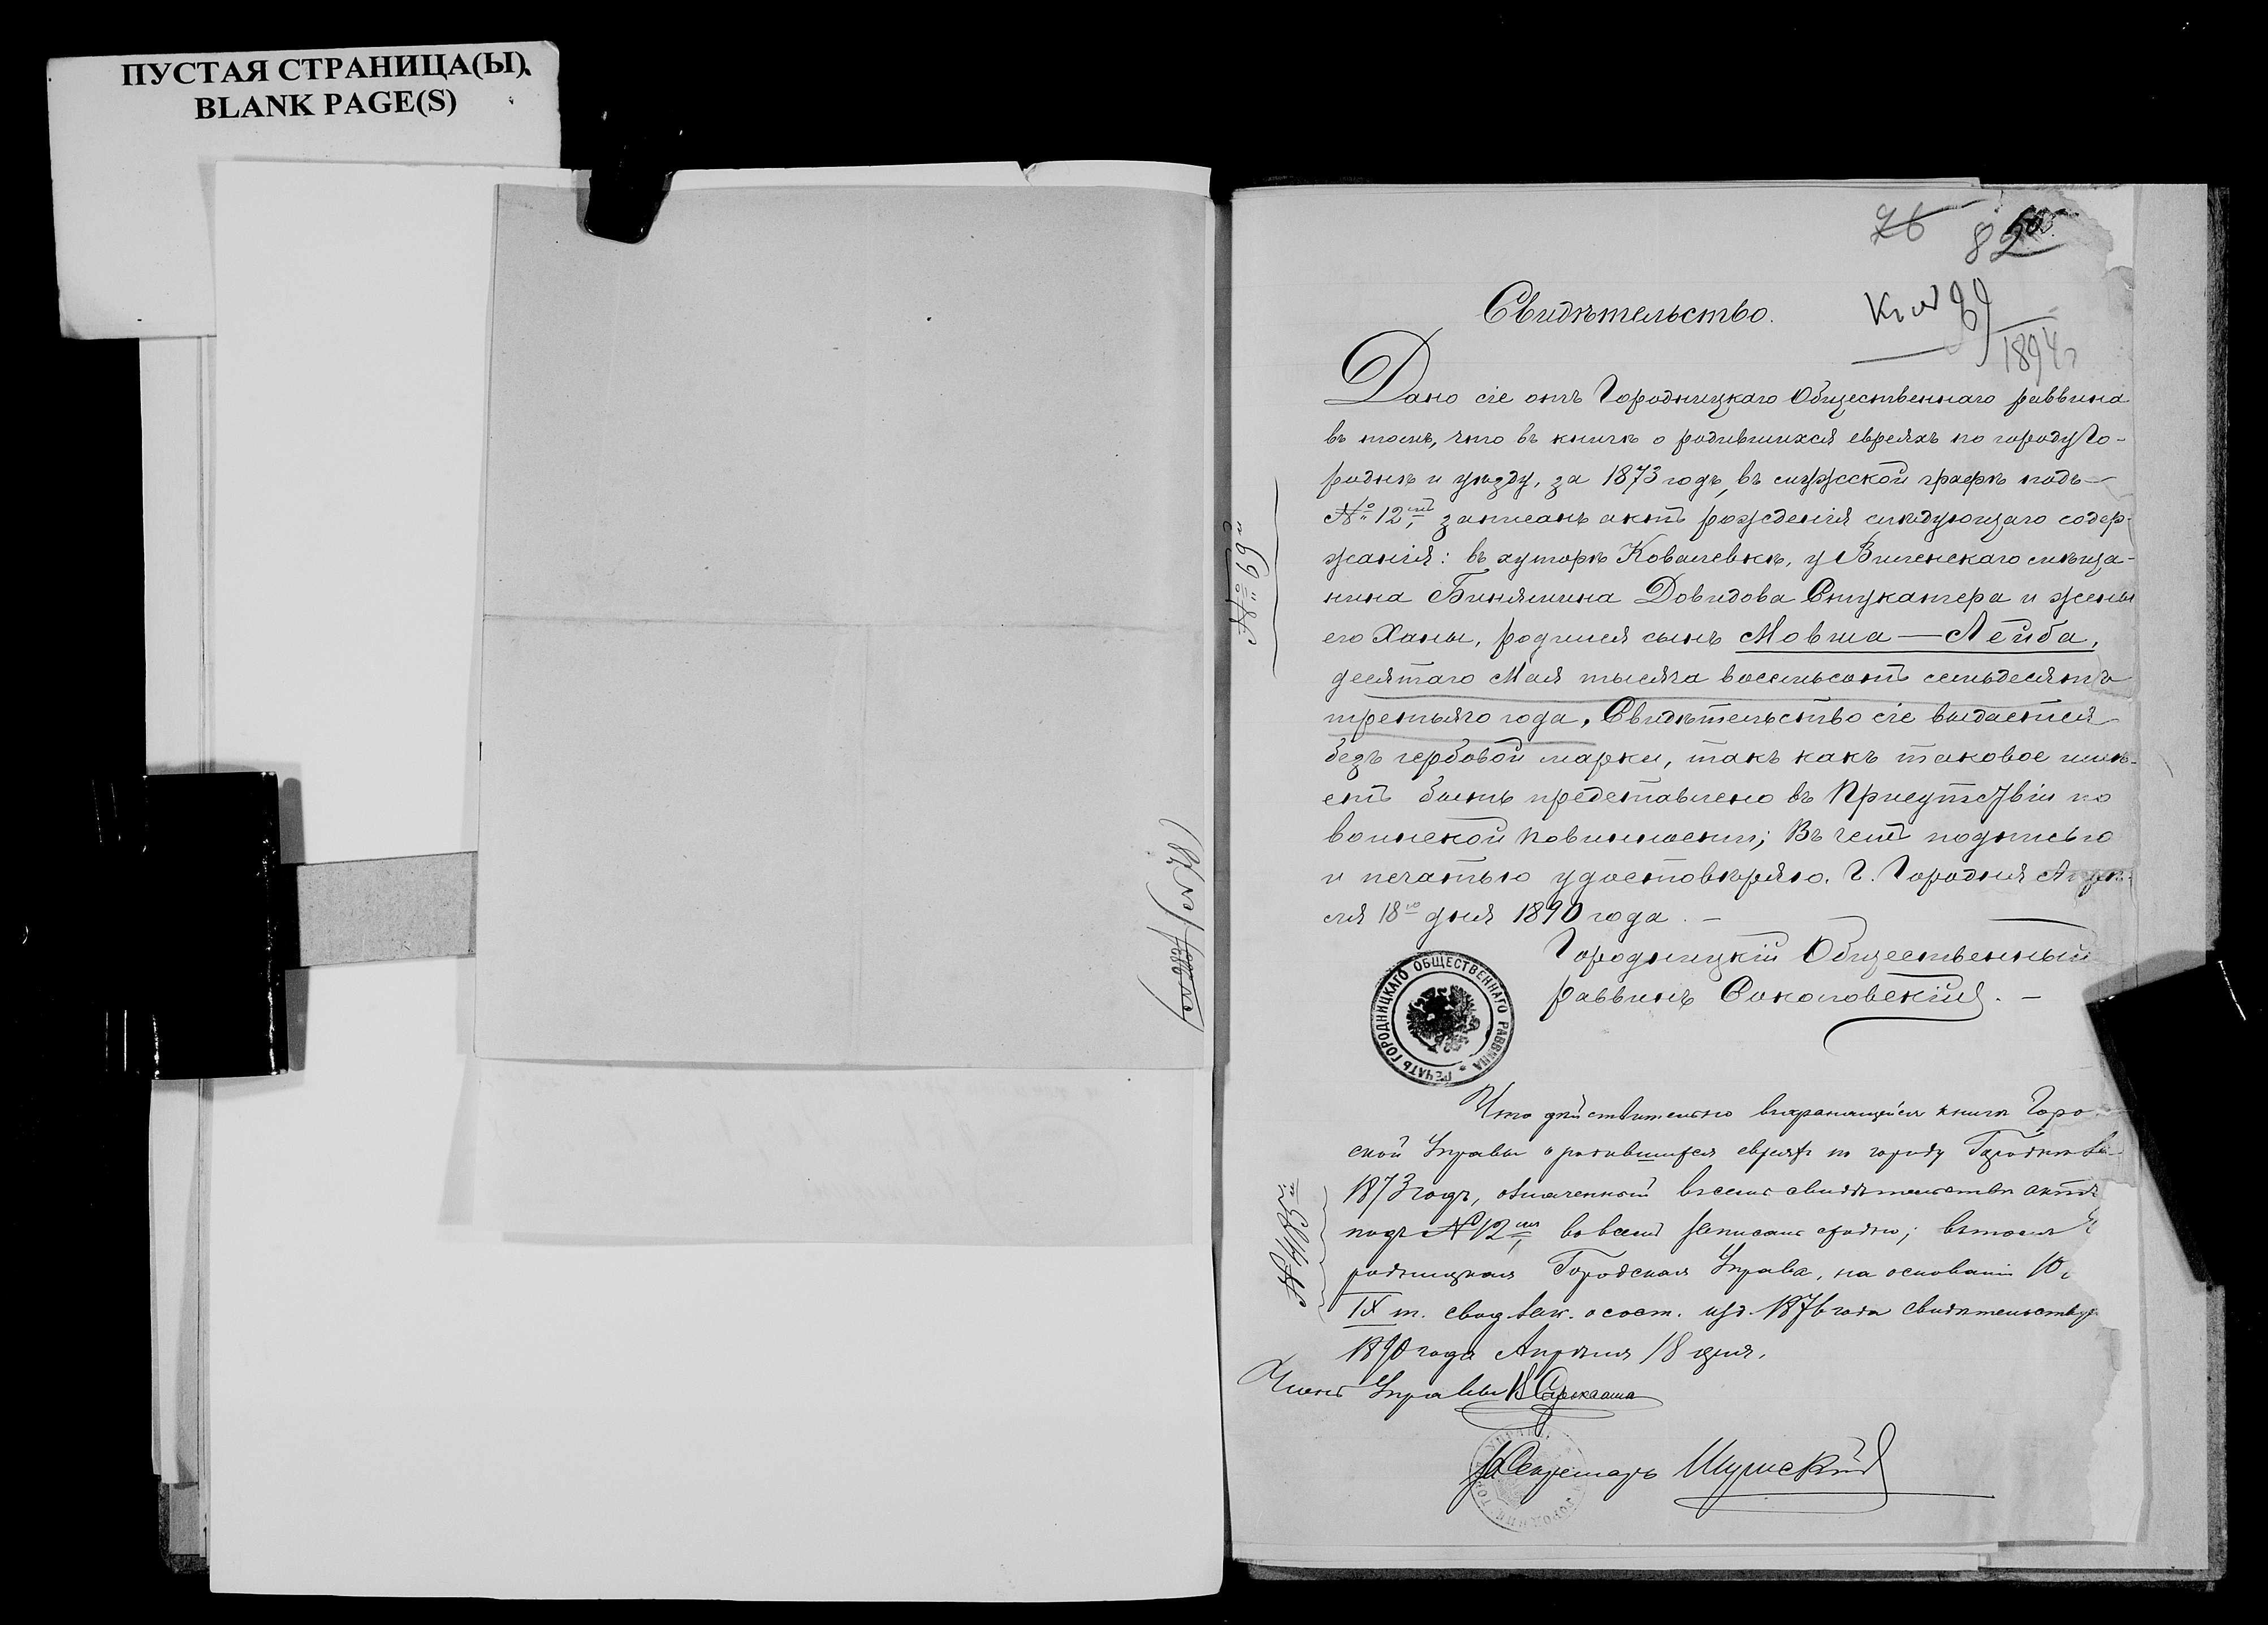 ПУСТАЯ СТРАНИЦА(Ы).
BLANK PAGE(S)
76
82
1894 г
Свидѣтельство.
Дано сіе отъ Городницкаго Общественнаго раввина
въ томъ, что въ книгѣ о родившихся евреяхъ по городу Го-
роднѣ и уѣзду, за 1873 годъ, въ мужской графѣ подъ
№ 12мъ, записанъ актъ рожденія слѣдующаго содер-
жанія: въ хуторѣ Ковалевкѣ, у Виленскаго мѣща-
нина Бинямина Довидова Стукатера и жены
его Ханы, родился сынъ Мовша—Лейба,
десятаго Мая тысяча восемьсотъ семьдесятъ
третьяго года, Свидѣтельство сіе выдается
безъ гербовой марки, такъ какъ таковое имѣ-
етъ быть представлено въ Присутствіи по
воинской повинности; Въ чемъ подписью
и печатью удостовѣряю. Г. Городня Апрѣ-
ля 18го дня 1890 года. —
Городницкій Общественный
раввинъ Соколовскій. —
ПЕЧАТЬ ГОРОДНИЦКАГО ОБЩЕСТВЕННАГО РАВВИНА
№ 69й
Что дѣйствительно въ хранящейся книгѣ Горо
ской Управы о родившихся евреяхъ по городу Городнѣ за
1873 годъ, означенный въ семъ свидѣтельствѣ актъ
подъ № 12мъ, во всемъ записанъ сходно; въ томъ
родницкая Городская Управа, на основаніи 10
IX т. свод. зак. о сост. изд. 1876 года свидѣтельствуе
1890 года Апрѣля 18 дня.
№ 485й
Членъ Управы
Секретарь